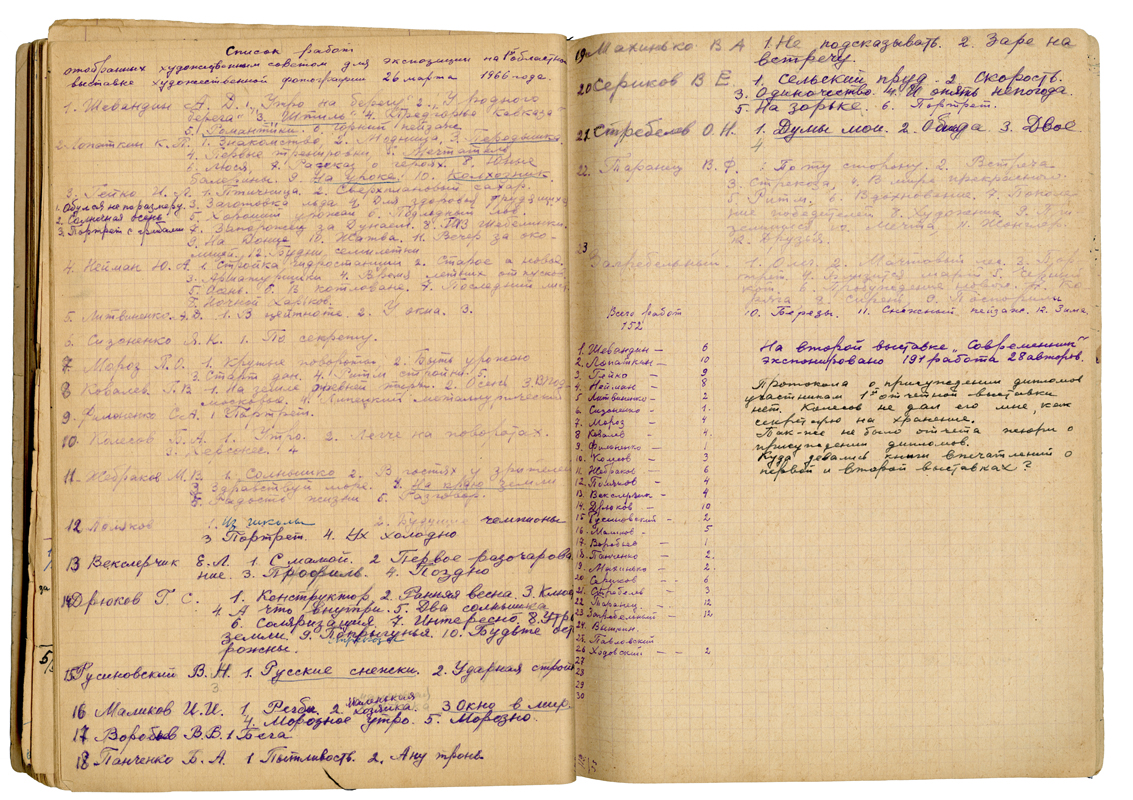 Список работ
отобранных художественным советом для экспозиции на 1й областной
выставке художественной фотографии 26 марта 1966 года.
1. Шевандин А. Д. 1. Утро на берегу 2. У родного
берега 3. "Штиль" 4. Предгорья Кавказа
5. Романтики. 6. Горный пейзаж.
2. Лопаткин К. М. 1. Знакомство, 2. Модница, 3. Передышка
4. Первые тренировки, 5. Мечтатель
6. Люся, 7. Рассказ о героях. 8. Юные
балерины. 9. На уроке. 10. Колхозник.
3. Гейко И. Я. 1. Птичница. 2. Сверхплановый сахар.
1. Обулся не по размеру.
2. Солнечная осень
3. Портрет с грибами
3. Заготовка льда 4. Для здоровья трудящихся
5. Хороший урожай 6. Подледный лов.
7. Запорожец за Дунаем. 8. ГАЗ Шебелинки
9. На Донце. 10. Жатва. 11. Вечер за око-
лицей. 12. Будни семилетки
4. Нейман Ю. А. 1. Стройка гидростанции 2. Старое и новое.
3. Авиатурщики 4. В зоне летних отпусков
5. Осень. 6. В котловане. 7. Последний лист
8. Ночной Харьков.
5. Литвиненко. А. В. 1. В цейтноте. 2. У окна. 3.
6. Сизоненко Л. К. 1. По секрету.
7 Мороз П. О. 1. Крутые повороты 2. Быть урожаю
3. Старт дан. 4. Ритм стройки. 5.
8 Ковалев Г. В 1. На земле древней 2. Осень 3. В Под-
московье. 4. Липецкий металлургический
9. Филоненко С. А. 1. Портрет.
10. Колесов Б. А. 1. Утро. 2. Легче на поворотах.
3. 4
11. Жебраков М. В 1. Солнышко 2. В гостях у зрителей
3. Здравствуй море. 4. На краю земли
5. Радость жизни 6. Разговор.
12 Поляков 1. Из школы 2. Будущие чемпионы
3 Портрет. 4. Их холодно
13 Векслерчик Е. Л. 1. С мамой. 2 Первое разочарова-
ние. 3. Профиль. 4. Поздно
14 Дрюков Г. С. 1. Конструктор 2. Ранняя весна. 3. Ключ
4. А что внутри. 5. Два солнышка
6. Соляризация. 7. Интересно. 8. Утро
земли. 9. Попрыгунья. 10. Будьте осто-
рожны.
15 Русиновский В. Н. 1. Русские снежки. 2. Ударная строй
3.
16 Маликов И. И. 1. Регби. 2. Маленькая
хозяйка. 3 Окно в мир.
4. Морозное утро. 5. Морозно.
17 Воробьев В. В. 1 Бега
18 Панченко Б. А. 1 Пытливость. 2. А ну тронь
19. Махинько В А 1. Не подсказывать. 2. Заре на
встречу.
20 Сериков В Е. 1. Сельский пруд. 2 Скорость.
3. Одиночество. 4. И опять непогода.
5. На зорьке. 6. Портрет.
21. Стребелев О. Н. 1. Думы мои. 2. Обида. 3. Двое
4
22. Таранец В. Ф. 1. По ту сторону. 2. Встреча
3. Стрекоза, 4. В мире прекрасного.
5. Ритм, 6. Вдохновение. 7. Поколе-
ние победителей 8. Художник 9.
10. Мечта, 11.
12. Друзья.
23
Загребельный. 1. Ольг. 2. Мачтовый лес. 3. Пор-
трет. 4. 5. Черный
кот. 6. Пробуждение 7. Ко-
8. Сирень, 9. Поспорили
10. Березы. 11. Снежный пейзаж. 12. Зима.
Всего работ
152
1. Шевандин – 6
2. Лопаткин – 10
3. Гейко – 9
4. Нейман – 8
5 Литвинэнко – 2
6. Сизоненко – 1
7. Мороз – 4
8 Ковалев – 4
9. Филоненко – 1
10. Колесов – 3
11. Жебраков – 6
12 Поляков – 4
13. Векслерчик – 4
14. Дрюков – 10
15 Русиновский – 2
16. Маликов – 5
17. Воробьев – 1
18. Панченко – 2.
19. Махинько – 2
20 Сериков – 6
21. Стребель – 3
22 Таранец – 12
23 Загребельный – 12
24. Вышрин.
25. Павловский
26 Ходовский – – 2
27
28
29
30
На второй выставке „Современник"
экспонировано 191 работа 28 авторов.
Протокола о присуждении дипломов
участникам 1й отчетной выставки
нет. Колесов не дал его мне, как
секретарю на хранение.
Так-же не было отчета жюри о
присуждении дипломов.
Куда девались книги впечатлений о
первой и второй выставках?